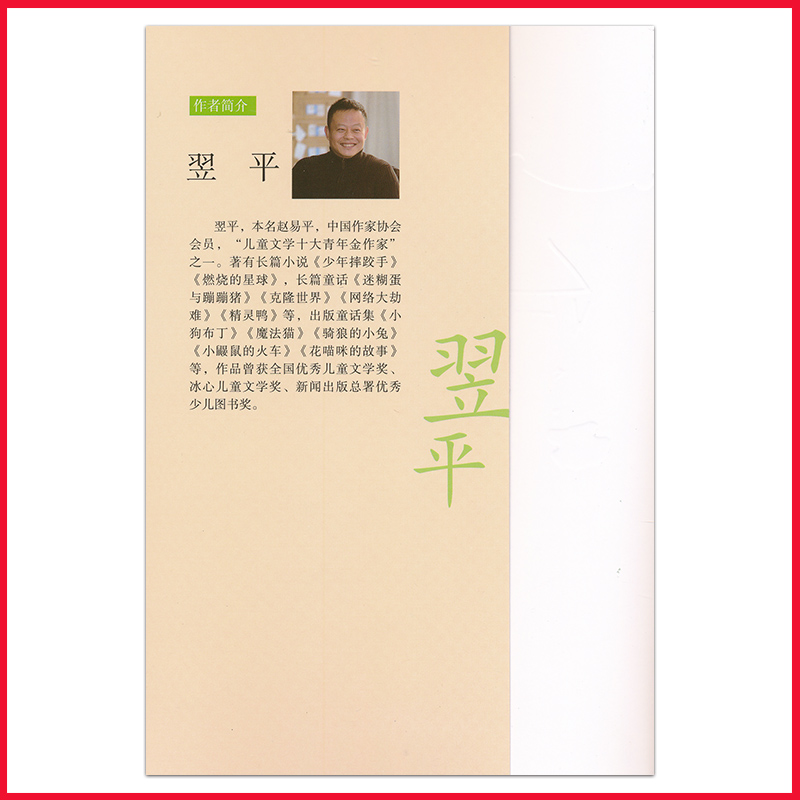 作者简介
翌 平
翌平，本名赵易平，中国作家协会
会员，“儿童文学十大青年金作家”
之一。著有长篇小说《少年摔跤手》
《燃烧的星球》，长篇童话《迷糊蛋
与蹦蹦猪》《克隆世界》《网络大劫
难》《精灵鸭》等，出版童话集《小
狗布丁》《魔法猫》《骑狼的小兔》
《小鼹鼠的火车》《花喵咪的故事》
等，作品曾获全国优秀儿童文学奖、
冰心儿童文学奖、新闻出版总署优秀
少儿图书奖。
翌
平